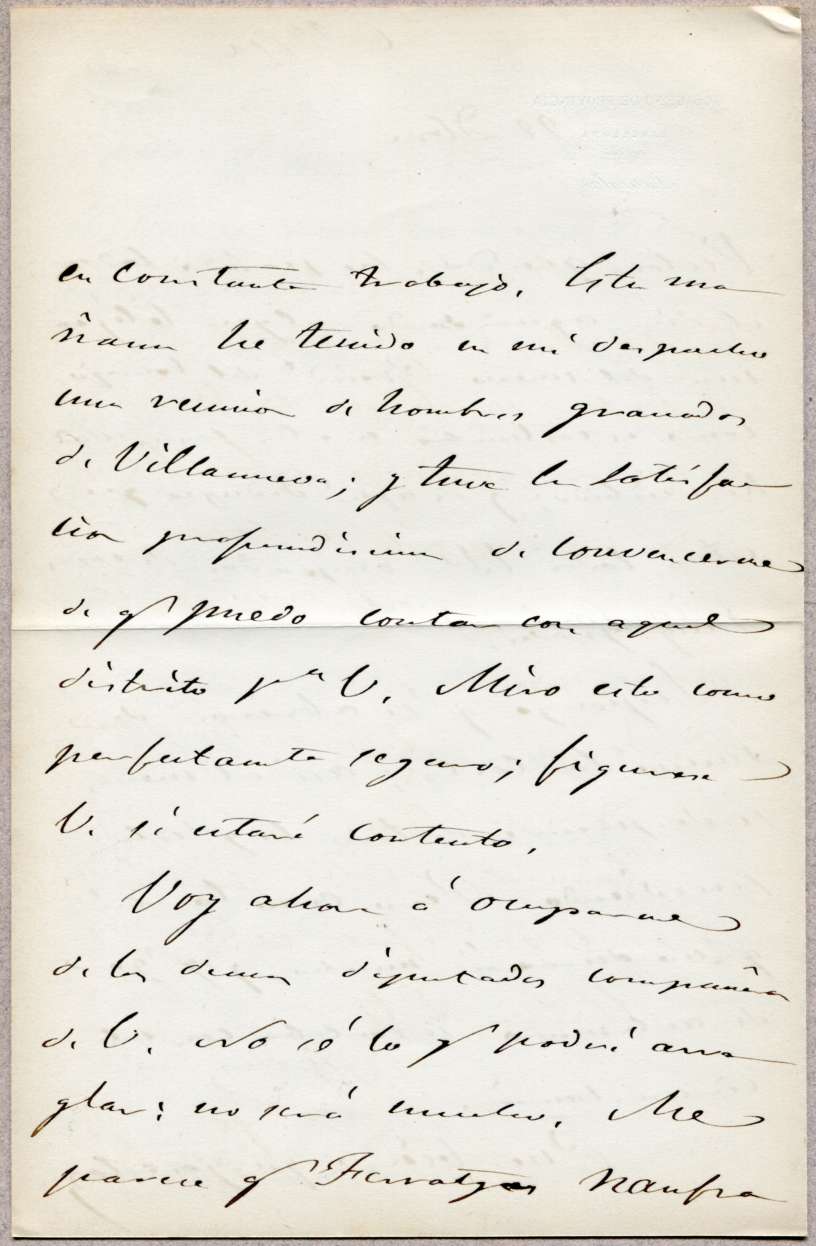 en constante trabajo. Esta ma
ñana he tenido en mi despacho
una reunion de hombres granados
de Villanueva; y tuve la satisfac
cion profundisima de convencerme
de q.e puedo contar con aquel
distrito p.a V. Miro esto como
perfectamente seguro; figurese
V. si estaré contento.
Voy ahora á ocuparme
de los demas diputados compañeros
de V. No sé lo q.e podré arre
glar; no será mucho. Me
parece q.e Ferratges naufra